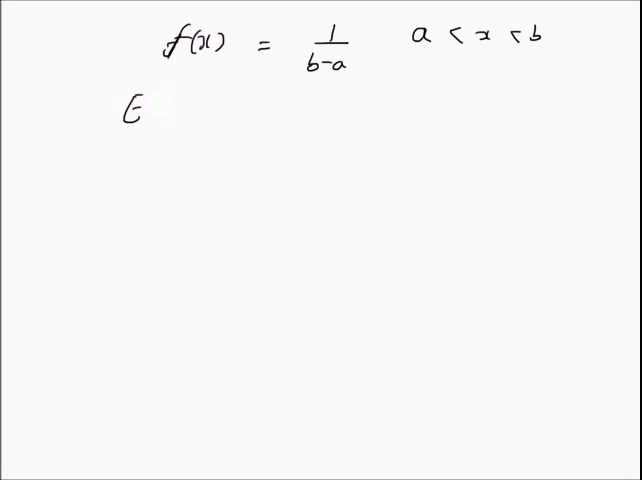 f(x) = 1/(b-a) a < x < b
E